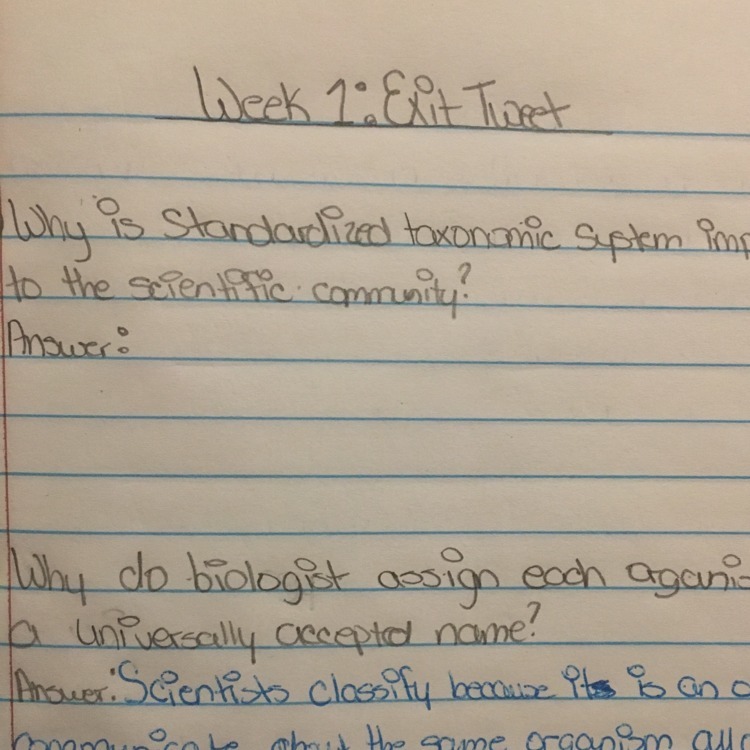 Week 1: Exit Tweet
Why is Standardized taxonomic system imp
to the scientific community?
Answer:
Why do biologist assign each aganis
a universally accepted name?
Answer: Scientists classify because its is an
communicate about the same organism all